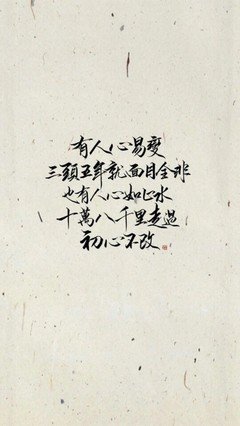 有人心易變
三頭五年就面目全非
也有人心如止水
十萬八千里走過
初心不改